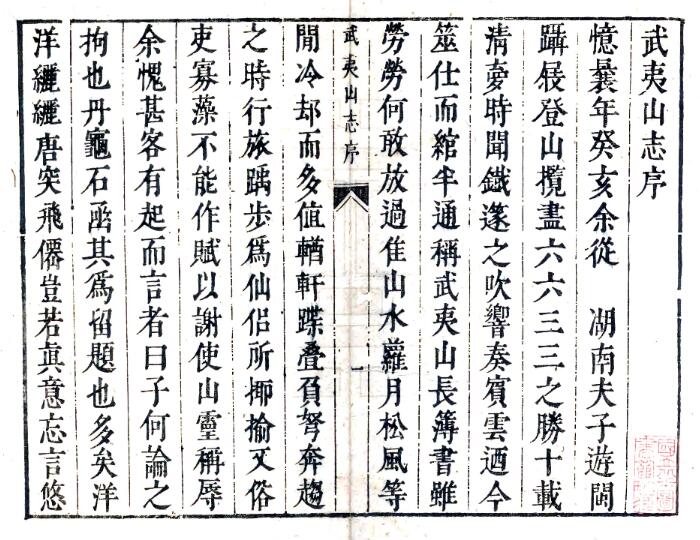 武夷山志序
憶曩年癸亥余從 湖南夫子遊閩
躡屐登山攬盡六六三三之勝十載
淸夢時聞鐵篴之吹響奏賓雲迺今
筮仕而綰半通稱武夷山長簿書雖
勞勞何敢放過佳山水蘿月松風等
武夷山志序
一
閒冷却而多值輶軒蹀疊負弩奔趨
之時行旅踽步爲仙侣所揶揄又俗
吏寡藻不能作賦以謝使山靈稱辱
余愧甚客有起而言者曰子何論之
拘也丹龜石凾其爲留題也多矣洋
洋纚纚唐突飛僊豈若眞意忘言悠